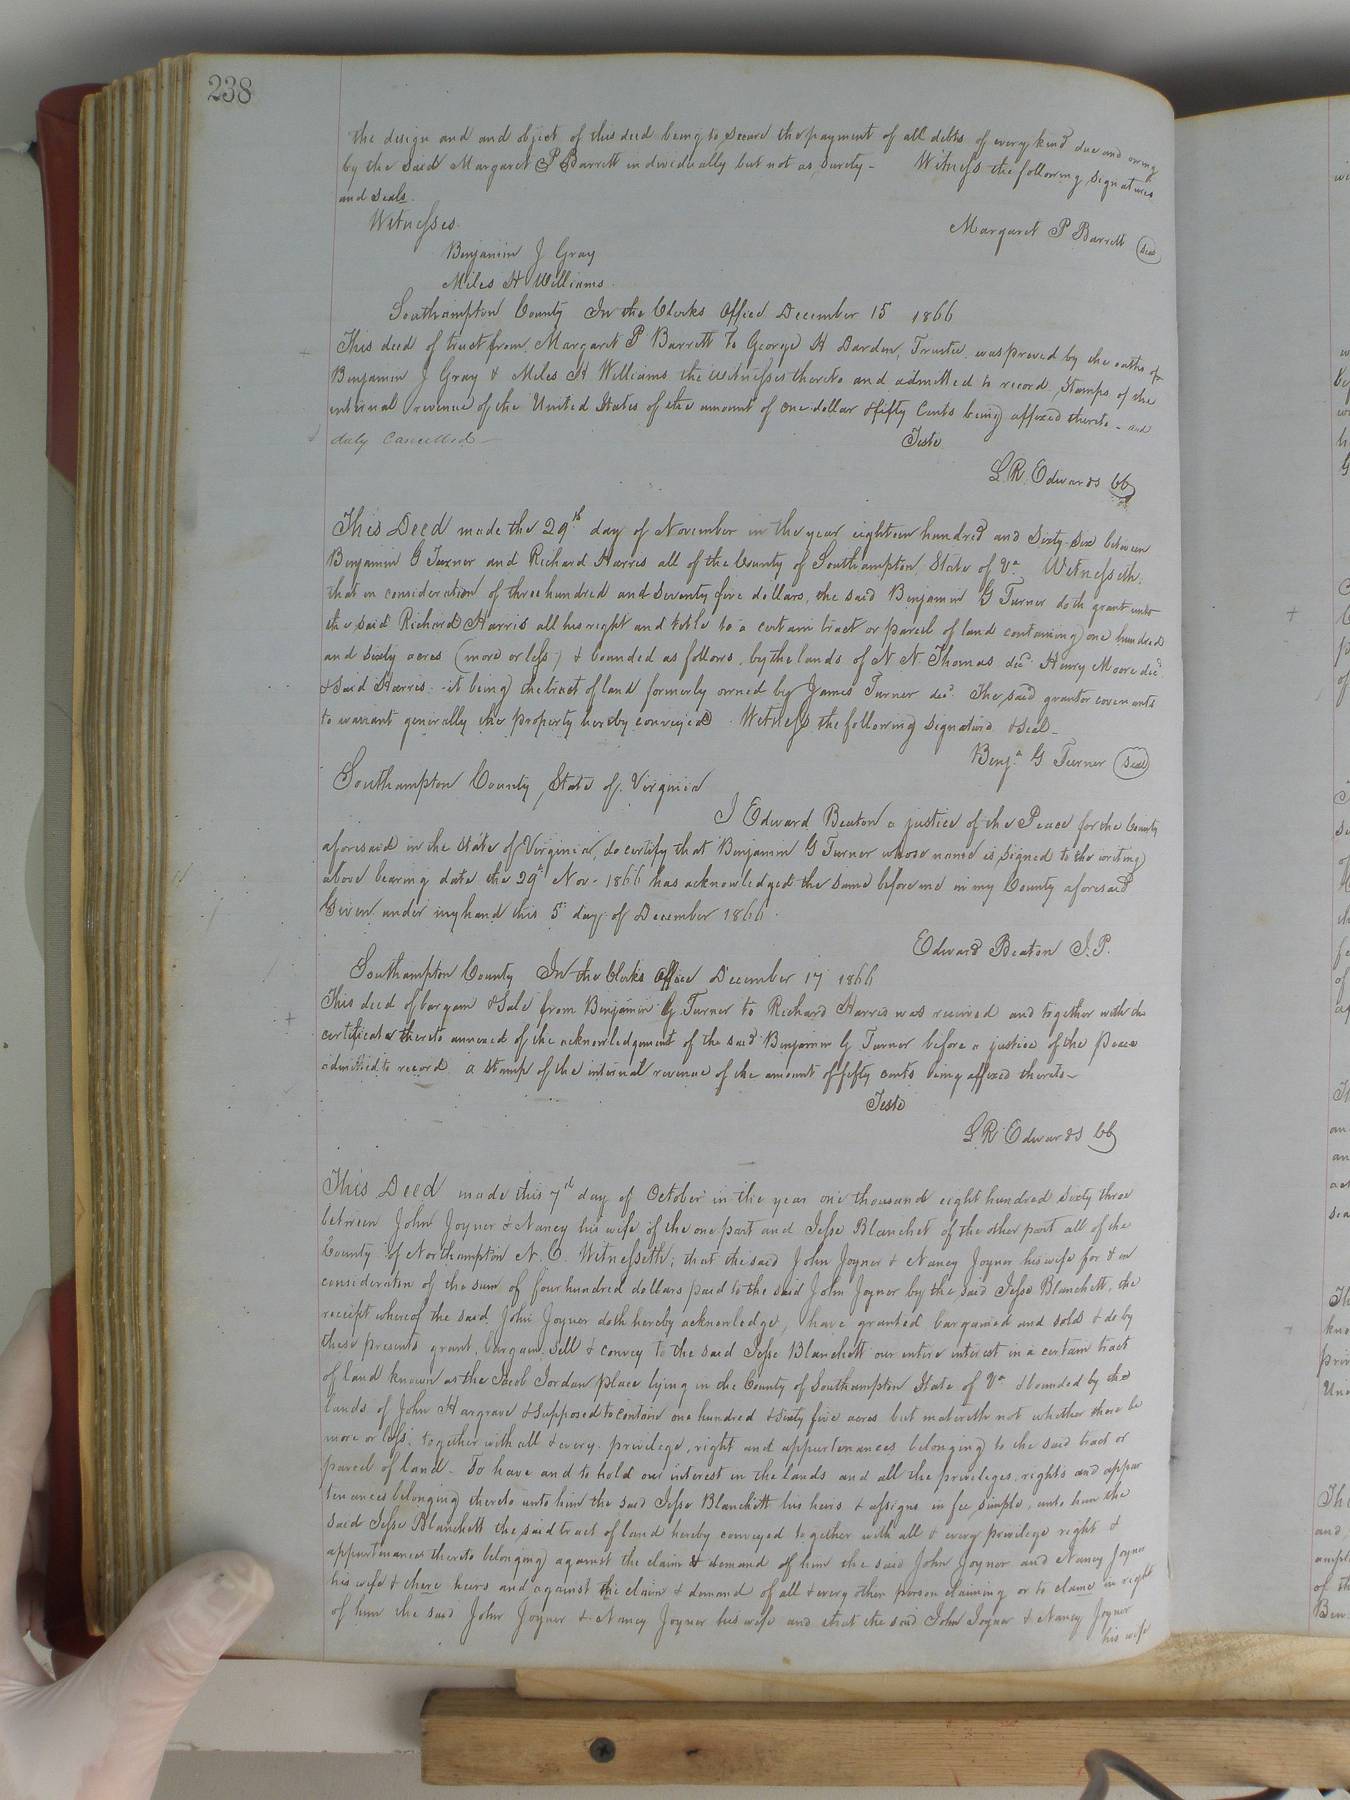 238
the design and and object of this deed being to secure the payment of all debts of every kind due and owing
by the said Margaret P Barrett individually but not as surety - Witness the following signatures
and seals.
Witnesses.
Margaret P Barrett (seal)
Benjamin J Gray
Miles H Williams.
Southampton County In the Clerks Office December 15 1866
This deed of trust from Margaret P Barrett To George H Darden, Trustee was proved by the oaths of
Benjamin J Gray & Miles H Williams the witnesses thereto and admitted to record, stamps of the
internal revenue of the United States of the amount of one dollar & fifty Cents being affixed thereto - and
duly cancelled -
Teste
L.R. Edwards CC
This Deed made the 29th day of November in the year eighteen hundred and Sixty-Six between
Benjamin G Turner and Richard Harris all of the County of Southampton, State of Va. Witnesseth:
that in consideration of three hundred and seventy five dollars, the said Benjamin G Turner doth grant unto
the said Richard Harris all his right and title to a certain tract or parcel of land containing one hundred
and sixty acres (more or less) & bounded as follows, by the lands of N. N. Thomas decd. Henry Moore decd
& said Harris. it being the tract of land formerly owned by James Turner decd. The said grantor covenants
to warrant generally the property hereby conveyed. Witness the following signature & seal -
Benja. G Turner (seal)
Southampton County, State of Virginia
I Edward Beaton a justice of the Peace for the County
aforesaid in the State of Virginia, do certify that Benjamin G Turner whose name is signed to the writing
above bearing date the 29th Nov- 1866 has acknowledged the same before me in my County aforesaid
Given under my hand this 5 day of December 1866.
Edward Beaton J.P.
Southampton County In the Clerks Office December 17 1866
This deed of bargain & Sale from Benjamin G Turner to Richard Harris was received and together with the
certificate thereto annexed of the acknowledgement of the said Benjamin G Turner before a justice of the Peace
admitted to record a stamp of the internal revenue of the amount of fifty cents being affixed thereto -
Teste
L R Edwards CC
This Deed made this 7th day of October in the year one thousand eight hundred sixty three
between John Joyner & Nancy his wife of the one part and Jesse Blanchet of the other part all of the
County of Northampton N. C. Witnesseth; that the said John Joyner & Nancy Joyner his wife for & in
consideration of the sum of four hundred dollars paid to the said John Joyner by the said Jesse Blanchett, the
receipt whereof the said John Joyner doth hereby acknowledge, have granted bargained and sold & do by
these presents grant, bargain, sell & convey to the said Jesse Blanchett our entire interest in a certain tract
of land known as the Jacob Jordan place lying in the County of Southampton State of Va & bounded by the
lands of John Hargrave & supposed to contain one hundred & sixty five acres but mattereth not whether there be
more or less, together with all & every privilege, right and appurtenances belonging to the said tract or
parcel of land. To have and to hold our interest in the lands and all the privileges, rights and appur
tenances belonging thereto unto him the said Jesse Blanchett his heirs & assigns in fee simple, unto him the
said Jesse Blanchett the said tract of land hereby conveyed together with all & every privilege right &
appurtenances thereto belonging against the claim & demand of him the said John Joyner and Nancy Joyner
his wife & there heirs and against the claim & demand of all & every other person claiming or to claim in right
of him the said John Joyner & Nancy Joyner his wife and that the said John Joyner & Nancy Joyner
his wife